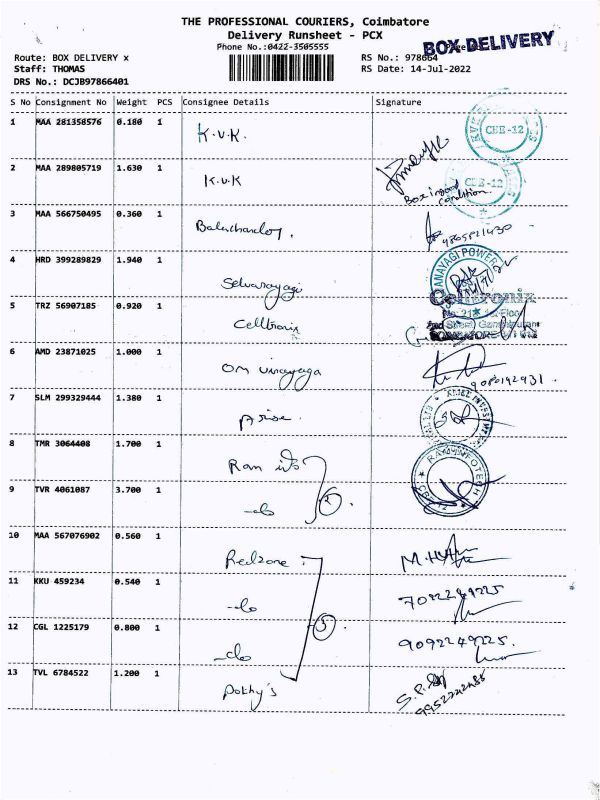 THE PROFESSIONAL COURIERS, Coimbatore
Delivery Runsheet - PCX
Phone No.:0422-3505555
BOX DELIVERY
Route: BOX DELIVERY x
RS No.: 978664
Staff: THOMAS
RS Date: 14-Jul-2022
DRS No.: DCJB97866401
S No Consignment No Weight PCS Consignee Details Signature
1 MAA 281358576 0.180 1 K.V.K.
CBE-12
2 MAA 289805719 1.630 1 K.V.K
CBE-12
Box in good
condition.
3 MAA 566750495 0.360 1 Balachandar.
4 HRD 399289829 1.940 1 Selvanayagi
ANAYAGI POWER
5 TRZ 56907185 0.920 1 Celltronix
Celltronix
6 AMD 23871025 1.000 1 Om Vinayaga
9080192931.
7 SLM 299329444 1.380 1 Arise.
8 TMR 3064408 1.700 1 Ram info
RAM INFOTECH
9 TVR 4061087 3.700 1 -do 2
10 MAA 567076902 0.560 1 Redzone.
11 KKU 459234 0.540 1 -do
7092249225
12 CGL 1225179 0.800 1 -do 5
9092249225.
13 TVL 6784522 1.200 1 Pothy's